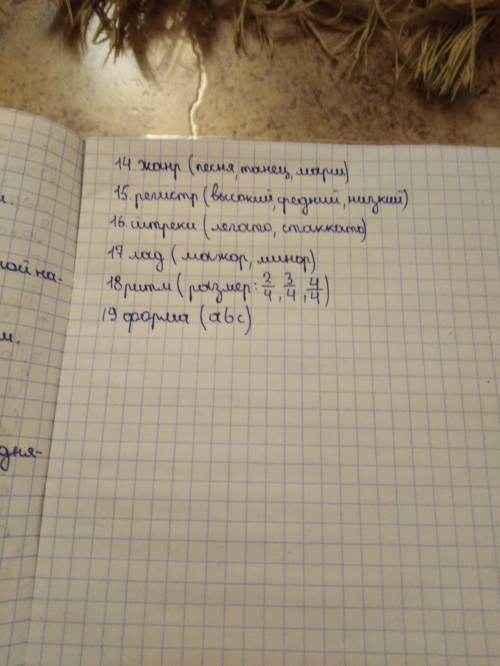 14 жанр (песня, танец, марш)
15. регистр (высокий, средний, низкий)
16. штрехи (легато, стаккато)
17 лад (мажор, минор)
18 ритм (размер: 2/4, 3/4, 4/4)
19 форма (abc)
м.
ной на-
м.
дня-